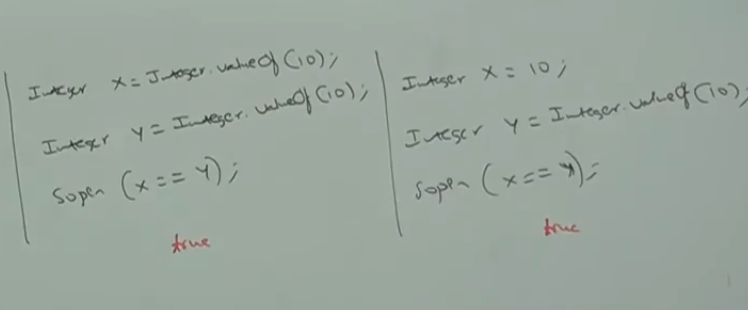 Integer x = Integer.valueOf(10);
Integer y = Integer.valueOf(10);
Sopln (x == y);
true
Integer x = 10;
Integer y = Integer.valueOf(10);
Sopln (x == y);
true